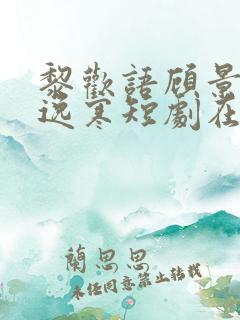 黎歡語顧景
逸寒短劇在
蘭思思
未經同意禁止轉載